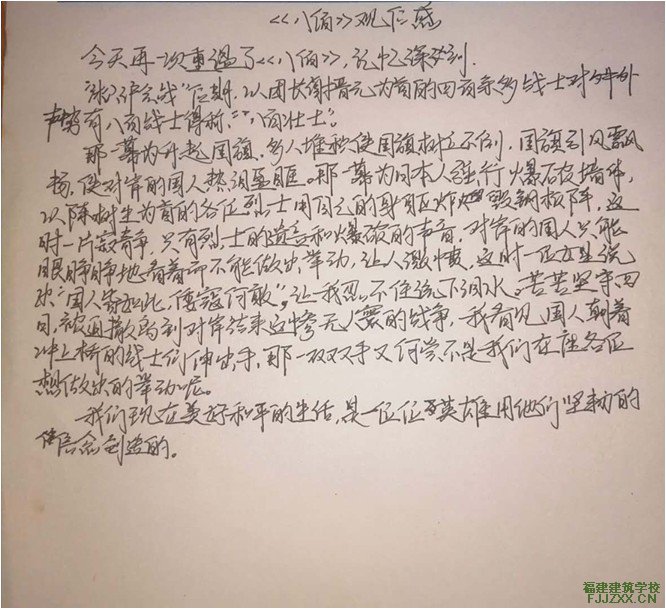 <<八佰>>观后感
今天再一次重温了<<八佰>>,记忆深刻.
"淞沪会战"后期,以团长谢晋元为首的四百余多战士对外
声势有八百战士得称:"八百壮士"。
那一幕为升起国旗,多人堆积使国旗树立不倒,国旗引风飘
扬,使对岸的国人热泪盈眶。那一幕为日本人强行爆破墙体,
以陈树生为首的各位烈士用自己的身躯炸毁钢板阵,这
时一片寂静,只有烈士的遗言和爆破的声音,对岸的国人只能
眼睁睁地看着而不能做出举动,让人激愤,这时一位女生说
出"国人皆如此,倭寇何敢",让我忍不住流下泪水。苦苦坚守四
日,被迫撤离到对岸结束这惨无人寰的战争,我看见国人朝着
冲上桥的战士们伸出手,那一双双手又何尝不是我们在座各位
想做出的举动呢。
我们现在美好和平的生活,是一位位英雄用他们坚韧的
信念创造的。
福建建筑学校
FJJZXX.CN